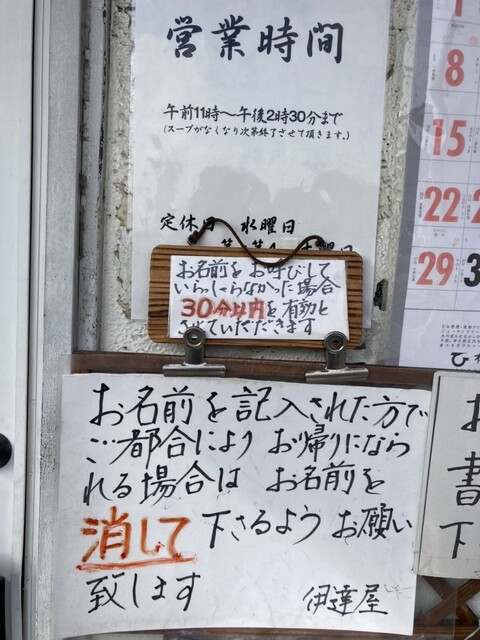 営業時間
午前11時～午後2時30分まで
(スープがなくなり次第終了させて頂きます。)
定休日 水曜日
お名前をお呼びして
いらっしゃらなかった場合
30分以内を有効と
させていただきます
お名前を記入された方で
ご都合により お帰りになら
れる場合は お名前を
消して 下さるよう お願い
致します
伊達屋
1
8
15
22
29
お
書
下